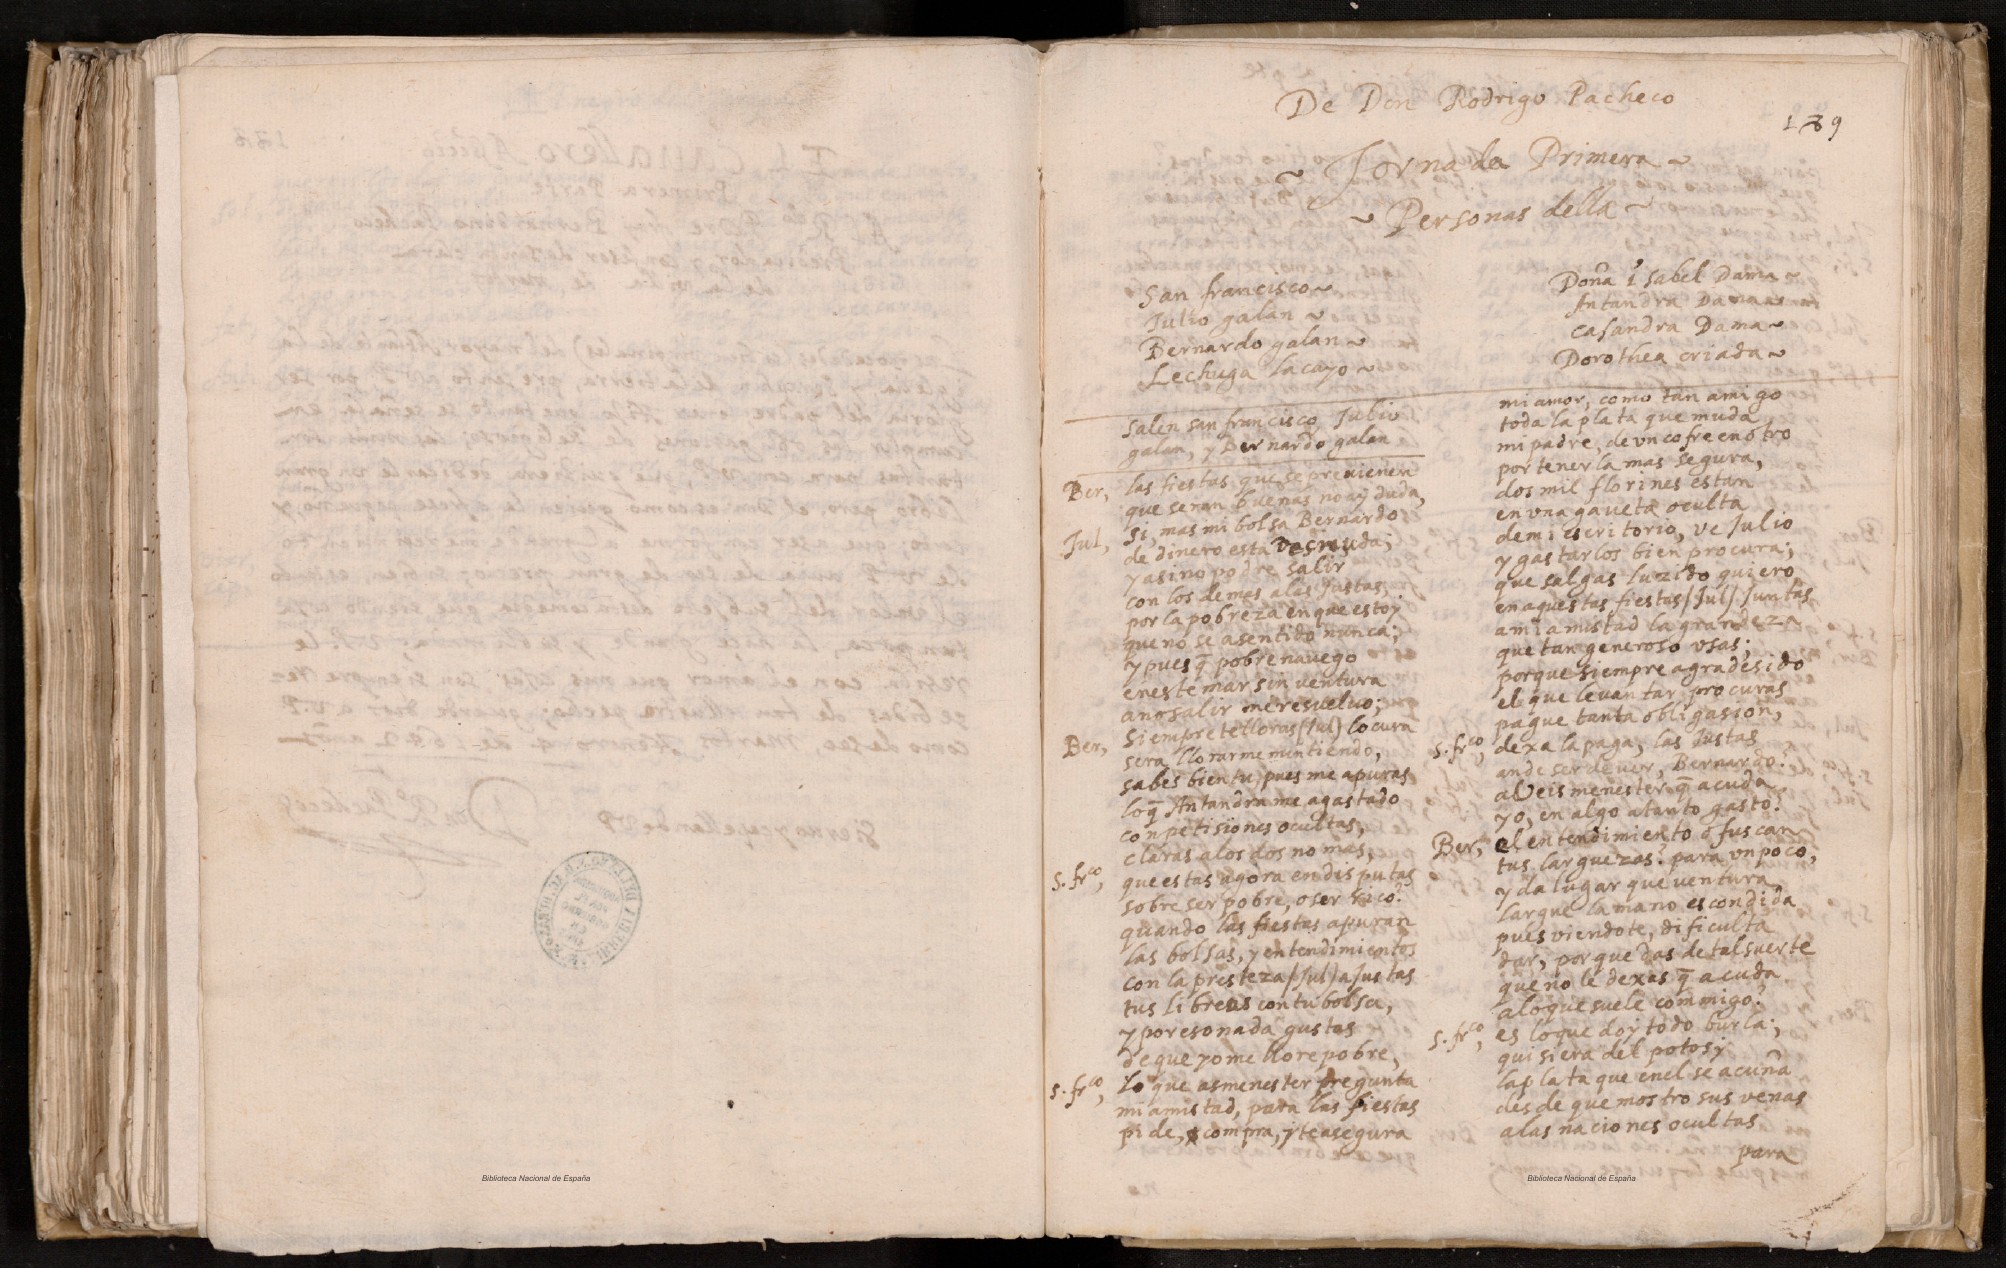 De Don Rodrigo Pacheco
189
~ Jornada Primera ~
~ Personas della ~
San francisco ~
Julio galan ~
Bernardo galan ~
Lechuga lacayo ~
Doña Isabel Dama ~
Antandra Dama
Casandra Dama ~
Dorothea criada ~
Salen san francisco, Julio
galan, y Bernardo galan
Ber, las fiestas que se previenen
que seran buenas no ay duda,
Jul, Si, mas mi bolsa Bernardo
de dinero esta desnuda;
y asi no podre salir
con los demas a las Justas,
por la pobreza en que estoy
que no se a sentido nunca;
y pues q̃ pobre navego
en este mar sin ventura
a no salir me resuelvo;
Ber, Siempre te lloras (Jul) locura
sera llorarme mintiendo,
sabes bien tu, pues me apuras
loq̃ Antandra me a gastado
con petisiones ocultas,
claras a los dos no mas,
s. fr.co, que estas agora en disputas
sobre ser pobre, o ser rico?
quando las fiestas apuran
las bolsas, y entendimientos
con la presteza (Jul) a Justas
tus libreas con tu bolsa,
y por eso nada gustas
de que yo me llore pobre,
s. fr.co, Lo que as menester pregunta
mi amistad, para las fiestas
pide, compra, y te asegura
mi amor, como tan amigo
toda la plata que muda
mi padre, de un cofre en otro
por tenerla mas segura,
dos mil florines estan
en vna gaveta oculta
de mi escritorio, ve Julio
y gastarlos bien procura;
que salgas luzido quiero
en aquestas fiestas (Jul) Juntas
a mi amistad la grandeza
que tan generoso vsas;
porque siempre agradesido
el que levantar procuras
pague tanta obligasion,
s. fr.co, dexa la paga, las Justas
an de ser de ver, Bernardo?
aveis menester q̃ acuda
yo, en algo a tanto gasto?
Ber, el entendimiento ofuscan
tus larguezas? para vn poco,
y da lugar que ventura
largue la mano escondida
pues viendote, dificulta
dar, porque das de tal suerte
que no le dexas q̃ acuda
a lo que suele commigo?
s. fr.co, es lo que doy todo burla;
quisiera del potosy
la plata que en el se acuña
desde que mostro sus venas
a las naciones ocultas
para
Biblioteca Nacional de España
Biblioteca Nacional de España